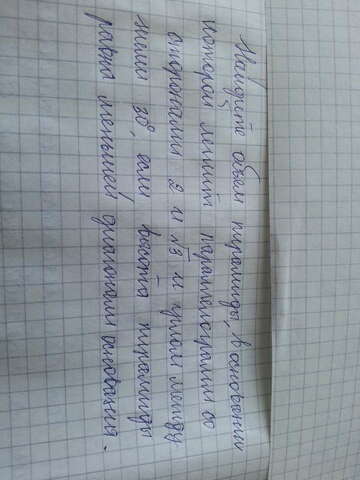 Найдите объем пирамиды, в основании
которой лежит параллелограмм со
сторонами 2 и √3 и углом между
ними 30°, если высота пирамиды
равна меньшей диагонали основания.